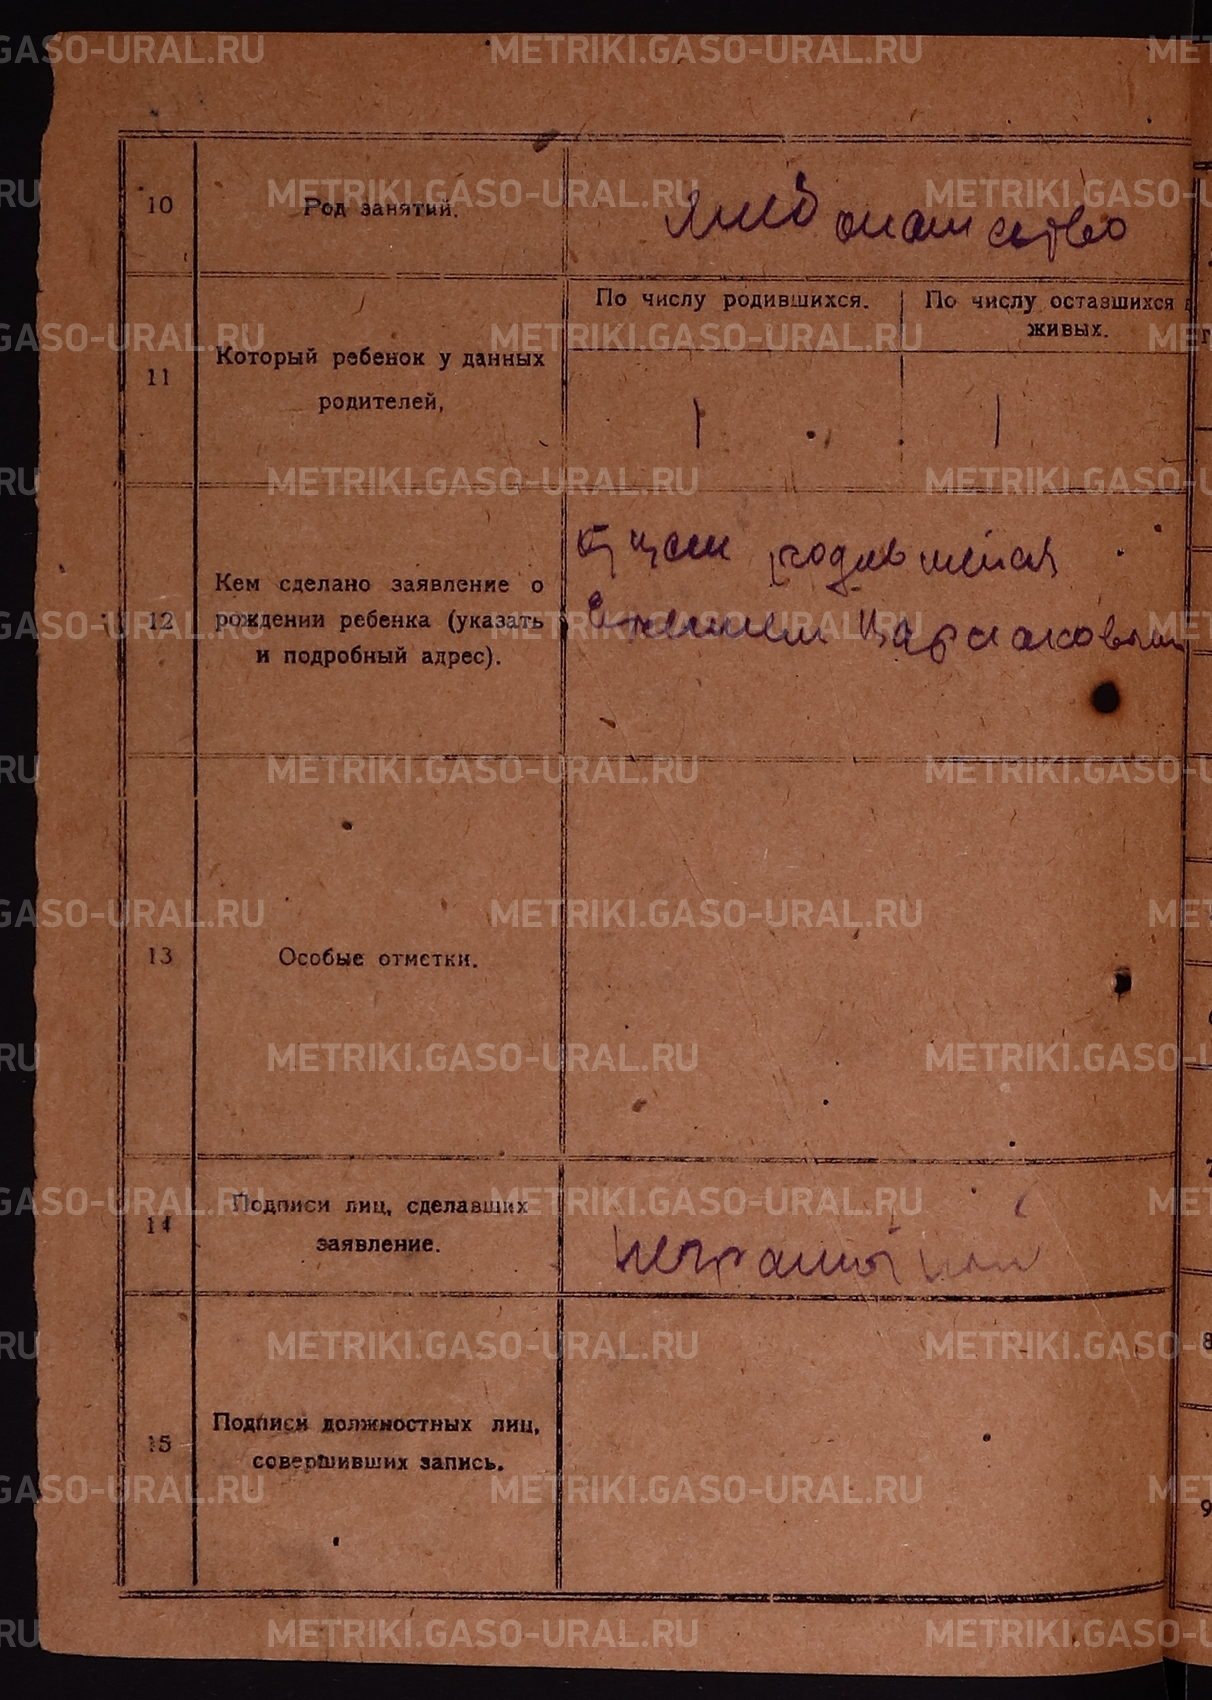 10
Род занятий.
Хлебопашество
11
Который ребенок у данных
родителей,
По числу родившихся.
По числу оставшихся в
живых.
1
1
12
Кем сделано заявление о
рождении ребенка (указать
и подробный адрес).
отцем родившейся
13
Особые отметки.
14
Подписи лиц, сделавших
заявление.
неграмотной
15
Подписи должностных лиц,
совершивших запись.
METRIKI.GASO-URAL.RU